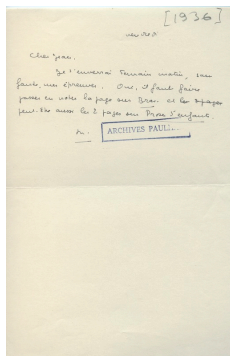 [1936]
vendredi
Cher Jean.
Je t'enverrai demain matin, sans
faute, mes épreuves. Oui, il faut faire
passer en notes la page sur et les pages
peut-être aussi les 2 pages sur d'enfants.
ARCHIVES PAUL